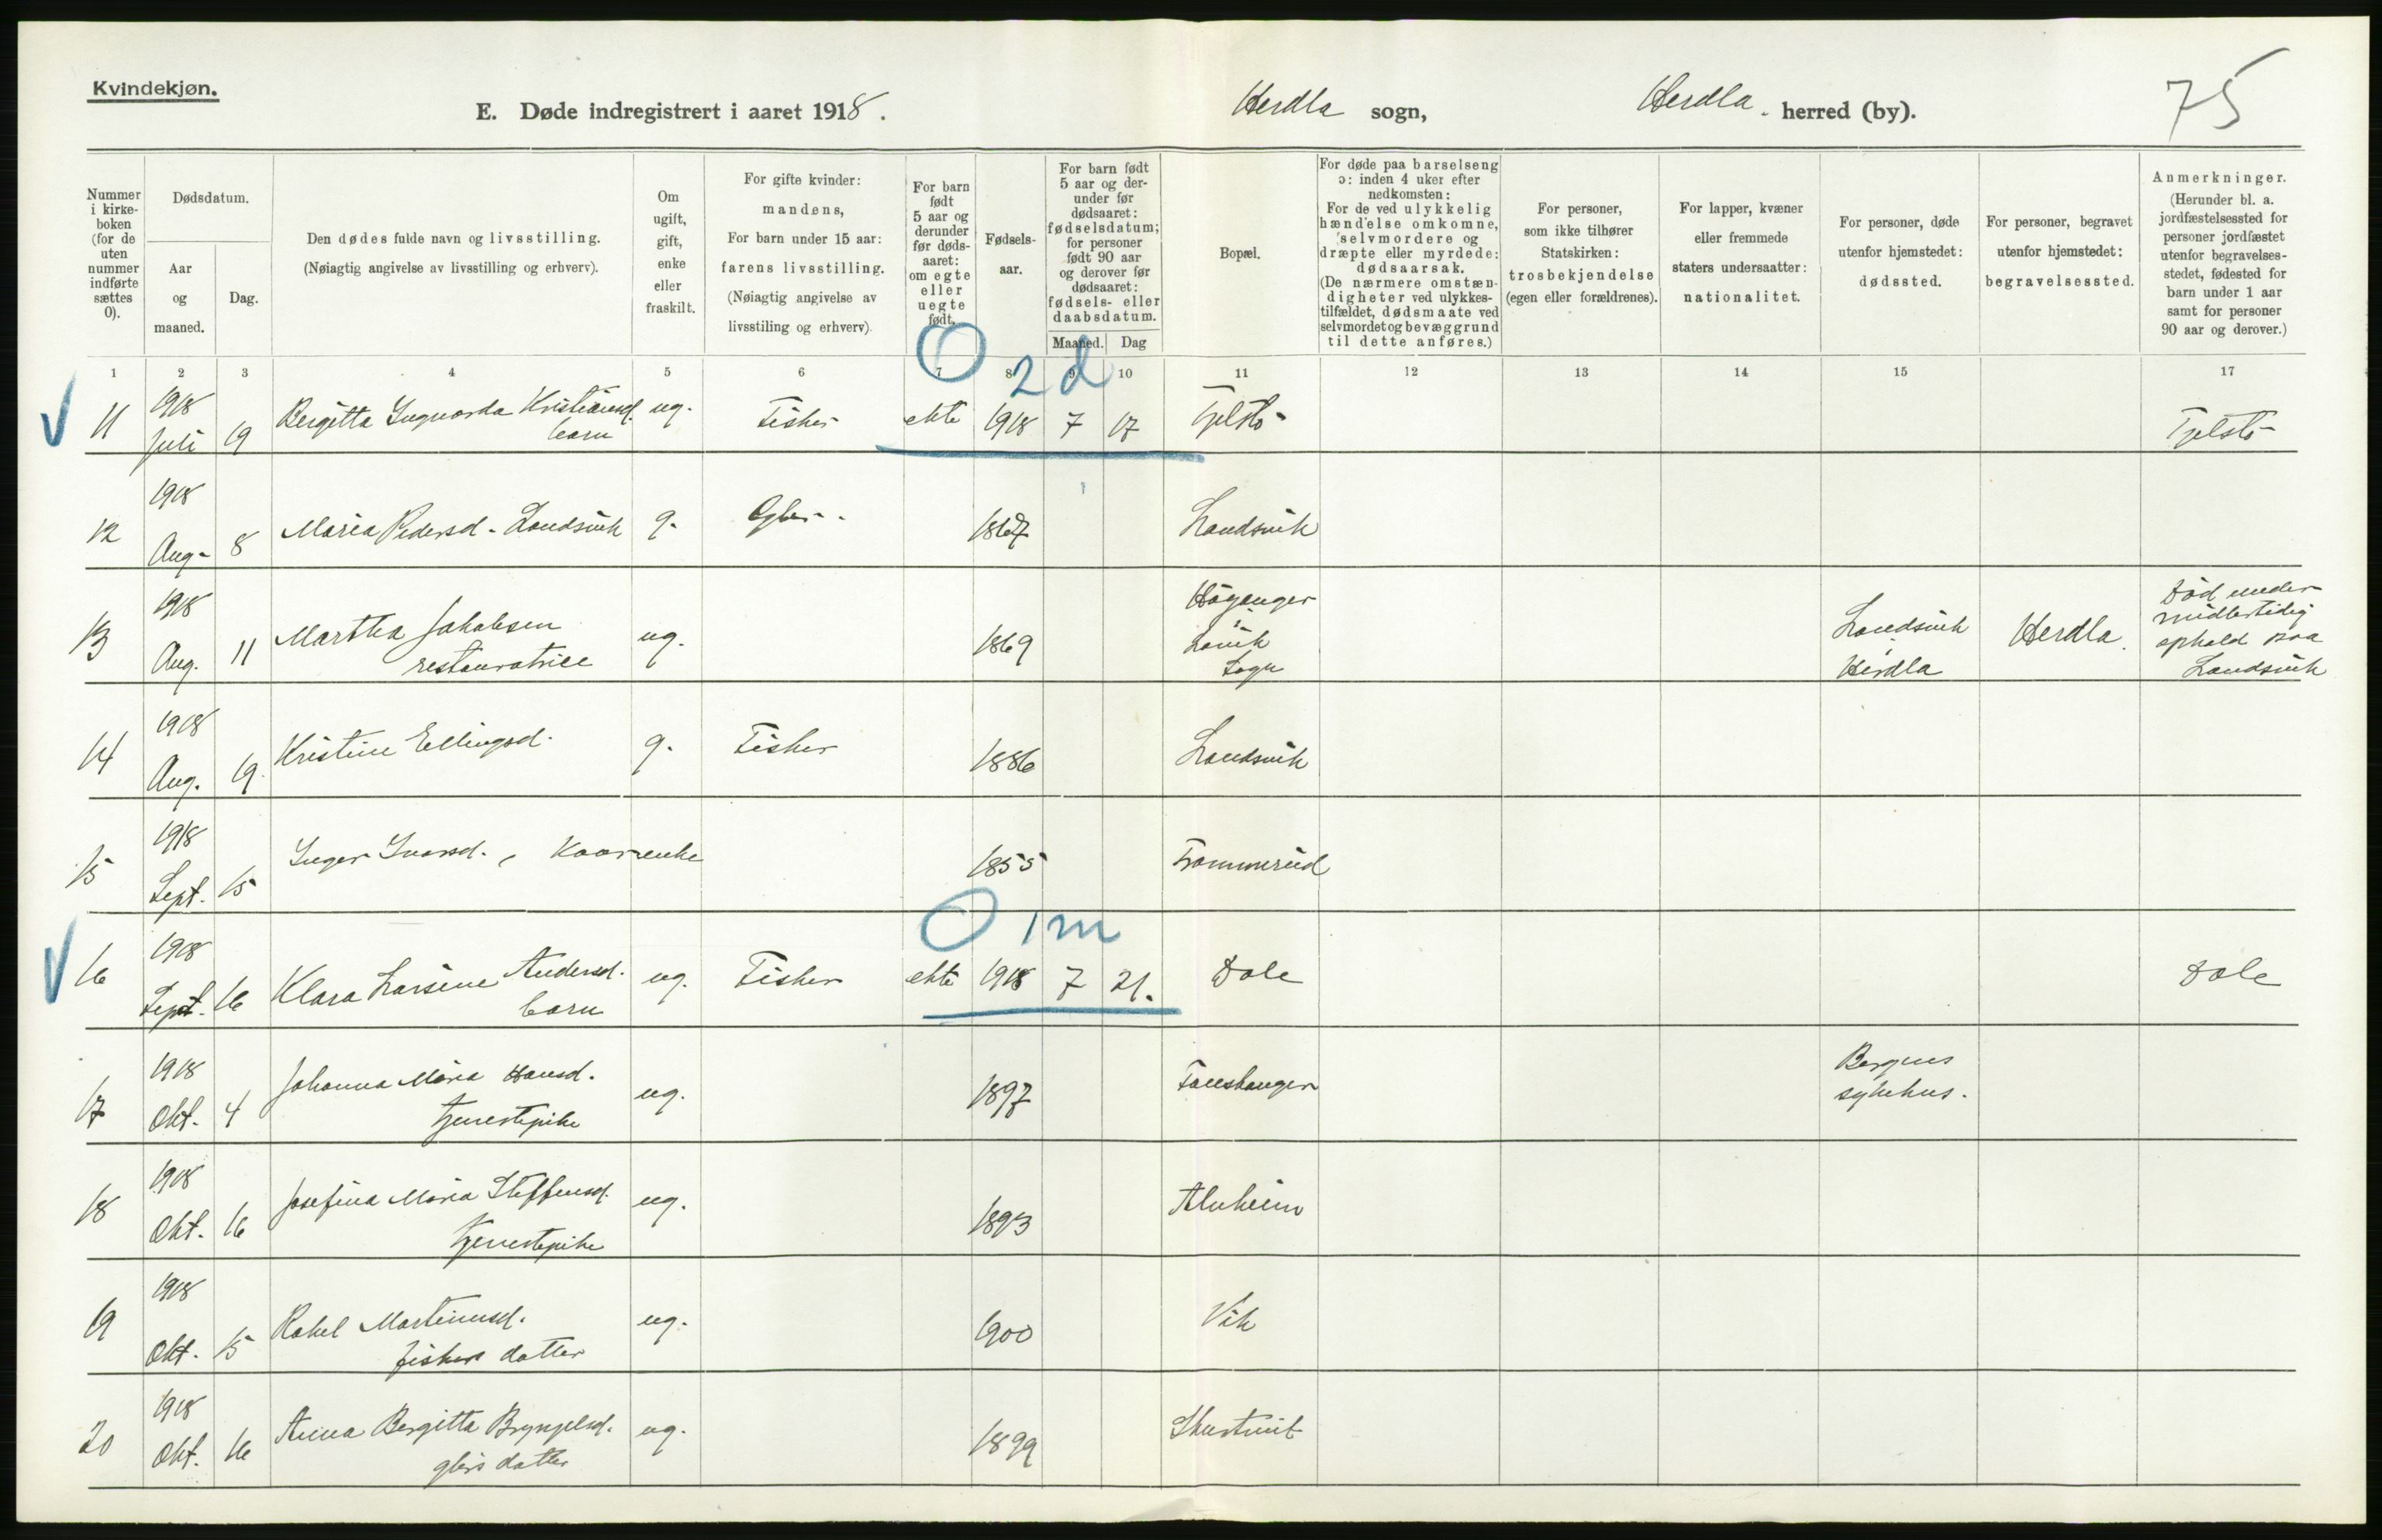 Kvindekjøn.
E. Døde indregistrert i aaret 1918.
Herdla sogn,
Herdla herred (by).
75
Nummer i kirke-boken (for de uten nummer indførte sættes 0).
Dødsdatum.
Aar og maaned.
Dag.
Den dødes fulde navn og livsstilling.
(Nøiagtig angivelse av livsstilling og erhverv).
Om ugift, gift, enke eller fraskilt.
For gifte kvinder: mandens,
For barn under 15 aar: farens livsstilling.
(Nøiagtig angivelse av livsstiling og erhverv).
For barn født 5 aar og derunder før døds-aaret: om egte eller uegte født.
Fødsels-aar.
For barn født 5 aar og der-under før dødsaaret: fødselsdatum; for personer født 90 aar og derover før dødsaaret: fødsels- eller daabsdatum.
Maaned.
Dag
Bopæl.
For døde paa barselseng ɔ: inden 4 uker efter nedkomsten:
For de ved ulykkelig hændelse omkomne, selvmordere og dræpte eller myrdede: dødsaarsak.
(De nærmere omstæn-digheter ved ulykkes-tilfældet, dødsmaate ved selvmordet og bevæggrund til dette anføres.)
For personer, som ikke tilhører Statskirken: trosbekjendelse (egen eller forældrenes).
For lapper, kvæner eller fremmede staters undersaatter: nationalitet.
For personer, døde utenfor hjemstedet: dødssted.
For personer, begravet utenfor hjemstedet: begravelsessted.
Anmerkninger.
(Herunder bl. a. jordfæstelsessted for personer jordfæstet utenfor begravelses-stedet, fødested for barn under 1 aar samt for personer 90 aar og derover.)
1 2 3 4 5 6 7 8 9 10 11 12 13 14 15 17
0 2 d
11 1918 Juli 19 Bergitta Ingvarda Kristiansd. barn ug. Fisker ekte 1918 7 17 Tjelstö Tjelstö
12 1918 Aug. 8 Maria Pedersd. Landsvik g. Gbr. 1867 Landsvik
13 1918 Aug. 11 Martha Jakobsen restauratrice ug. 1869 Höyanger Lavik Sogn Landsvik Herdla Herdla. Död under midlertidig ophold paa Landsvik
14 1918 Aug. 19 Kristine Ellingsd. g. Fisker 1886 Landsvik
15 1918 Sept. 15 Inger Ivarsd., Kaarenke 1855
0 1 m
16 1918 Sept. 16 Klara Larsine Andersd. barn ug. Fisker ekte 1918 7 21. Dale Dale
17 1918 Okt. 4 Johanna Maria Hansd. tjenestepike ug. 1897 Bergens sykehus.
18 1918 Okt. 16 Josefina Maria Steffensd. tjenestepike ug. 1893 Alvheim
19 1918 Okt. 15 Rakel Martinusd. fiskers datter ug. 1900 Vik
20 1918 Okt. 16 Anna Bergitta Brynjelsd. gbrs datter ug. 1899